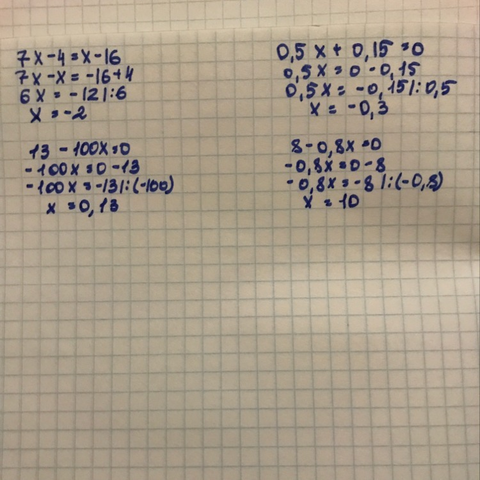 7x-4=x-16
7x-x=-16+4
6x=-12|:6
x=-2
0,5x+0,15=0
0,5x=0-0,15
0,5x=-0,15|:0,5
x=-0,3
13-100x=0
-100x=0-13
-100x=-13|:(-100)
x=0,13
8-0,8x=0
-0,8x=0-8
-0,8x=-8|:(-0,8)
x=10